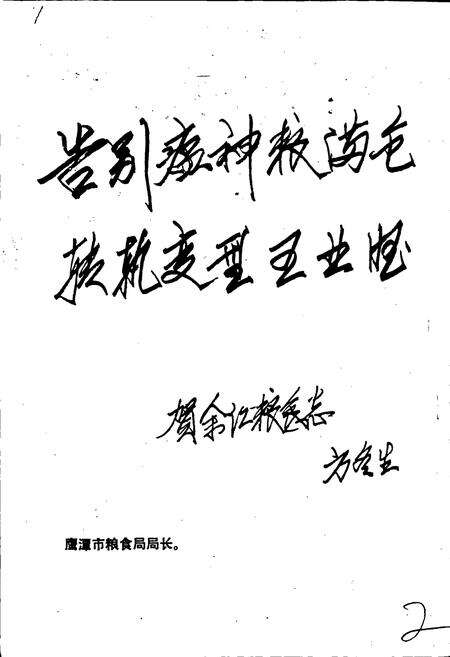 告别瘟神粮满仓
转轨变型王业恒
贺余江粮食志
方冬生
鹰潭市粮食局局长。
2